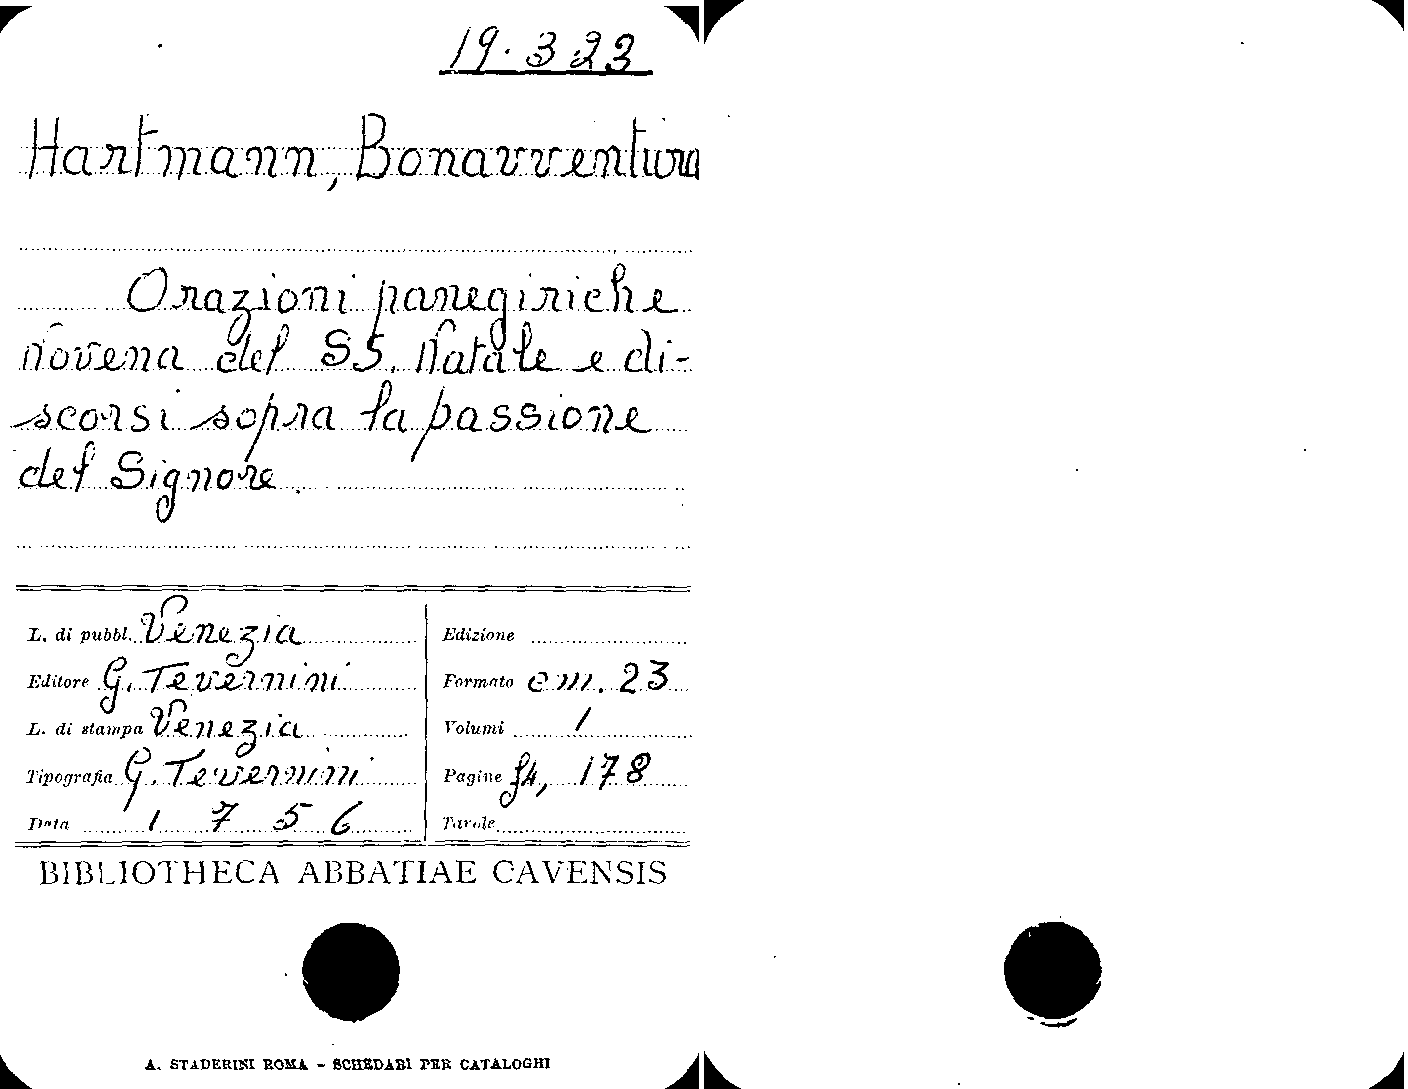 19.323
Hartmann, Bonavventura
Orazioni panegiriche
Novena del SS. Natale e di-
scorsi sopra la passione
del Signore.
L. di pubbl. Venezia
Editore G. Tevernini
L. di stampa Venezia
Tipografia G. Tevernini
Data 1756
Edizione
Formato cm. 23
Volumi 1
Pagine f4, 178
Tavole
BIBLIOTHECA ABBATIAE CAVENSIS
A. STADERINI ROMA - SCHEDARI PER CATALOGHI